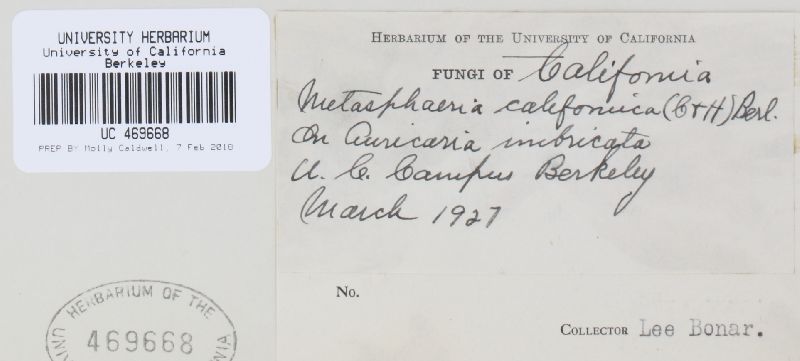 UNIVERSITY HERBARIUM
University of California
Berkeley
UC 469668
PREP BY Molly Caldwell, 7 Feb 2018
HERBARIUM OF THE UNIVERSITY OF CALIFORNIA
FUNGI OF California
Metasphaeria californica (C+H) Berl.
On Auricaria imbricata
U. C. Campus Berkeley
March 1927
No.
COLLECTOR Lee Bonar.
HERBARIUM OF THE
469668